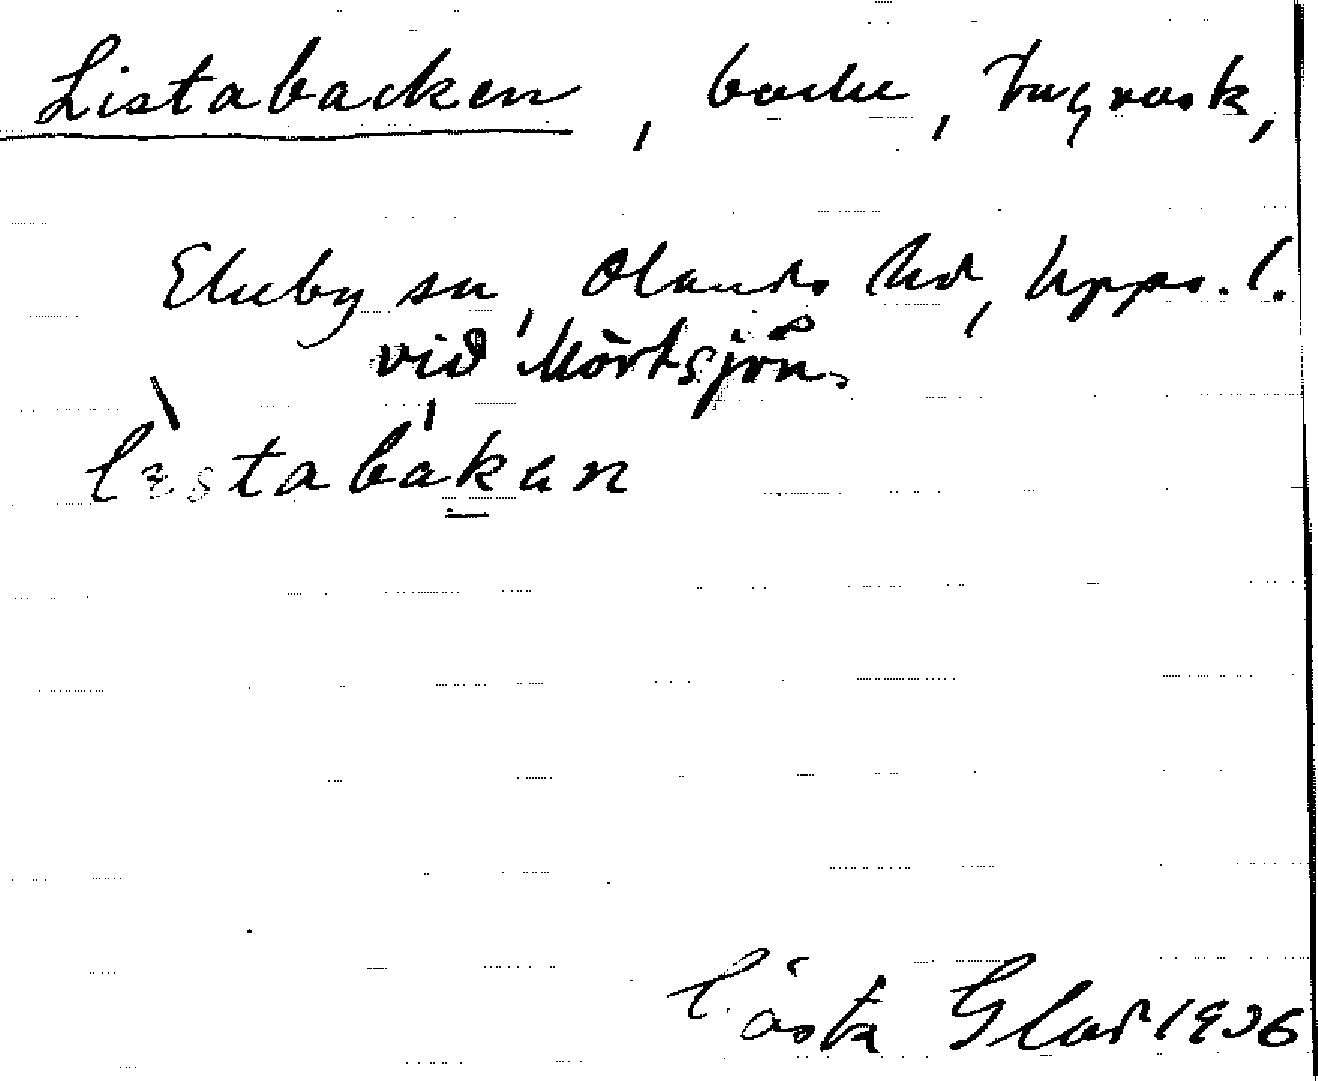 Listabacken, backe, Tugrask,
Ekeby sn, Olands hd, Upps. l.
vid Mörtsjön.
listabakan
Gösta Glad 1936